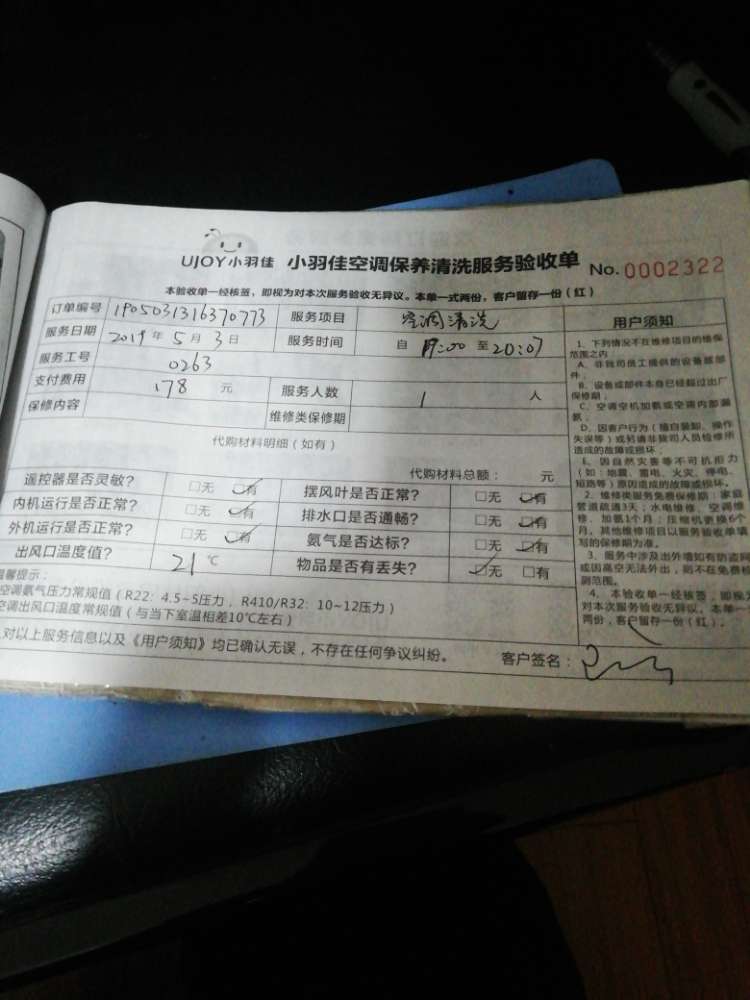 UJOY小羽佳 小羽佳空调保养清洗服务验收单 No.0002322
本验收单一经核签，即视为对本次服务验收无异议。本单一式两份，客户留存一份（红）
订单编号 190503131637077​3 服务项目 空调清洗
服务日期 2019年5月3日 服务时间 自 19:00 至 20:07
服务工号 0263
支付费用 178 元 服务人数 1 人
保修内容 维修类保修期
代购材料明细（如有）
代购材料总额： 元
遥控器是否灵敏？ □无 □有 摆风叶是否正常？ □无 □有
内机运行是否正常？ □无 □有 排水口是否通畅？ □无 □有
外机运行是否正常？ □无 □有 氨气是否达标？ □无 □有
出风口温度值？ 21 ℃ 物品是否有丢失？ □无 □有
温馨提示：
空调氨气压力常规值（R22：4.5~5压力，R410/R32：10~12压力）
空调出风口温度常规值（与当下室温相差10℃左右）
对以上服务信息以及《用户须知》均已确认无误，不存在任何争议纠纷。 客户签名：
用户须知
1、下列情况不在维修项目的维保
范围之内：
A、非我司员工提供的设备或部
件；
B、设备或部件本身已经超过出厂
保修期；
C、空调空机加氨或空调内部漏
氨；
D、因客户行为（擅自装卸、操作
失误等）或另请非我司人员检修所
造成的故障或损坏；
E、因自然灾害等不可抗拒力
（如：地震、雷电、火灾、停电、
短路等）原因造成的故障或损坏。
2、维修类服务免费保修期：家庭
管道疏通3天；水电维修、空调维
修、加氨1个月；压缩机更换6个
月，其他维修项目以服务验收单填
写的保修期为准。
3、服务中涉及出外墙如有防盗网
或因高空无法外出，则不在免费检
测范围。
4、本验收单一经核签，即视为
对本次服务验收无异议，本单一式
两份，客户留存一份（红）。